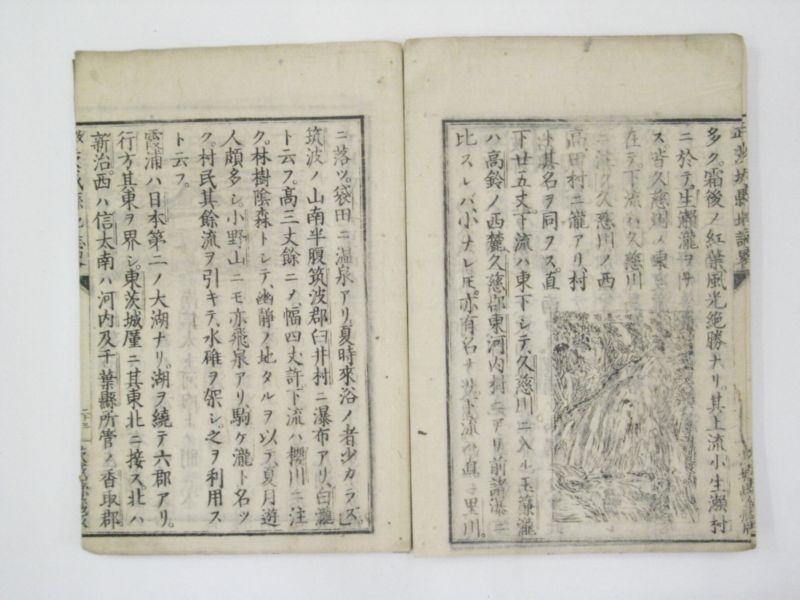 多ク。霜後ノ紅葉、風光絶勝ナリ。其上流小生瀬村
ニ於テ、生瀬瀧ヲナ
ス。皆久慈川ノ東
在テ、下流ハ久慈川
久慈川ノ西
高田村ニ瀧アリ、村
ト其名ヲ同フス。直
下廿五丈、下流ハ東下シテ久慈川ニ入ル。玉簾瀧
ハ高鈴ノ西麓、久慈郡東河内村ニアリ。前諸瀑ニ
比スレバ小ナレ𪜈、亦有名ナリ。下流ハ里川。
ニ落ツ。袋田ニ温泉アリ。夏時來浴ノ者少カラズ。
筑波ノ山南半腹、筑波郡臼井村ニ瀑布アリ、白瀧
ト云フ。高三丈餘ニメ、幅四丈許、下流ハ櫻川ニ注
ク。林樹陰森トシテ、幽靜ノ地タルヲ以テ、夏月遊
人頗多シ。小野山ニモ亦飛泉アリ。駒ケ瀧ト名ツ
ク。村民其餘流ヲ引キテ、水碓ヲ架シ、之ヲ利用ス
ト云フ。
霞浦ハ日本第二ノ大湖ナリ。湖ヲ繞テ六郡アリ。
行方其東ヲ界シ、東茨城厪ニ其東北ニ接ス。北ハ
新治、西ハ信太、南ハ河内及千葉縣所管ノ香取郡